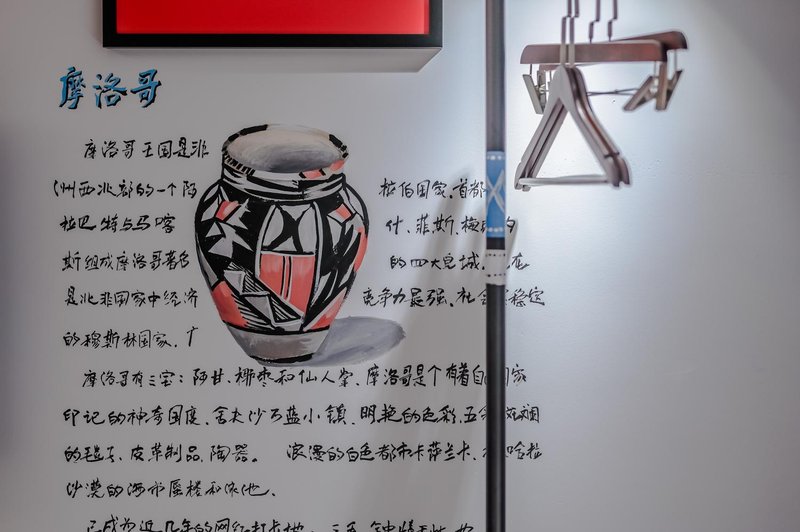 摩洛哥
摩洛哥王国是非
州西北部的一个阿 拉伯国家.首都
拉巴特与马喀 什、菲斯、梅
斯组成摩洛哥著名 的四大皇城.
是北非国家中经济 竞争力最强.社会 稳定
的穆斯林国家.
摩洛哥有三宝：阿甘、椰枣和仙人掌、摩洛哥是个有着自
印记的神奇国度、舍夫沙万蓝小镇、明艳的色彩.五
的毯子、皮革制品.陶器。 浪漫的白色都市卡萨兰卡、 哈拉
沙漠的海市蜃楼和
已成为近几年的网红打卡地、三毛